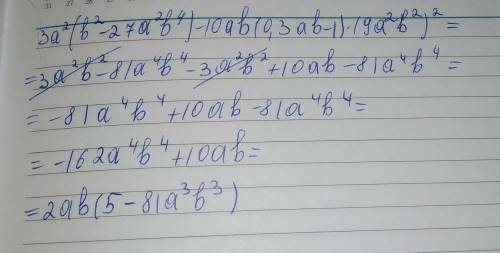 3a²(b²-27a²b⁴)-10ab(0,3ab-1)·(9a²b²)²=
=3a²b²-81a⁴b⁴-3a²b²+10ab-81a⁴b⁴=
=-81a⁴b⁴+10ab-81a⁴b⁴=
=-162a⁴b⁴+10ab=
=2ab(5-81a³b³)